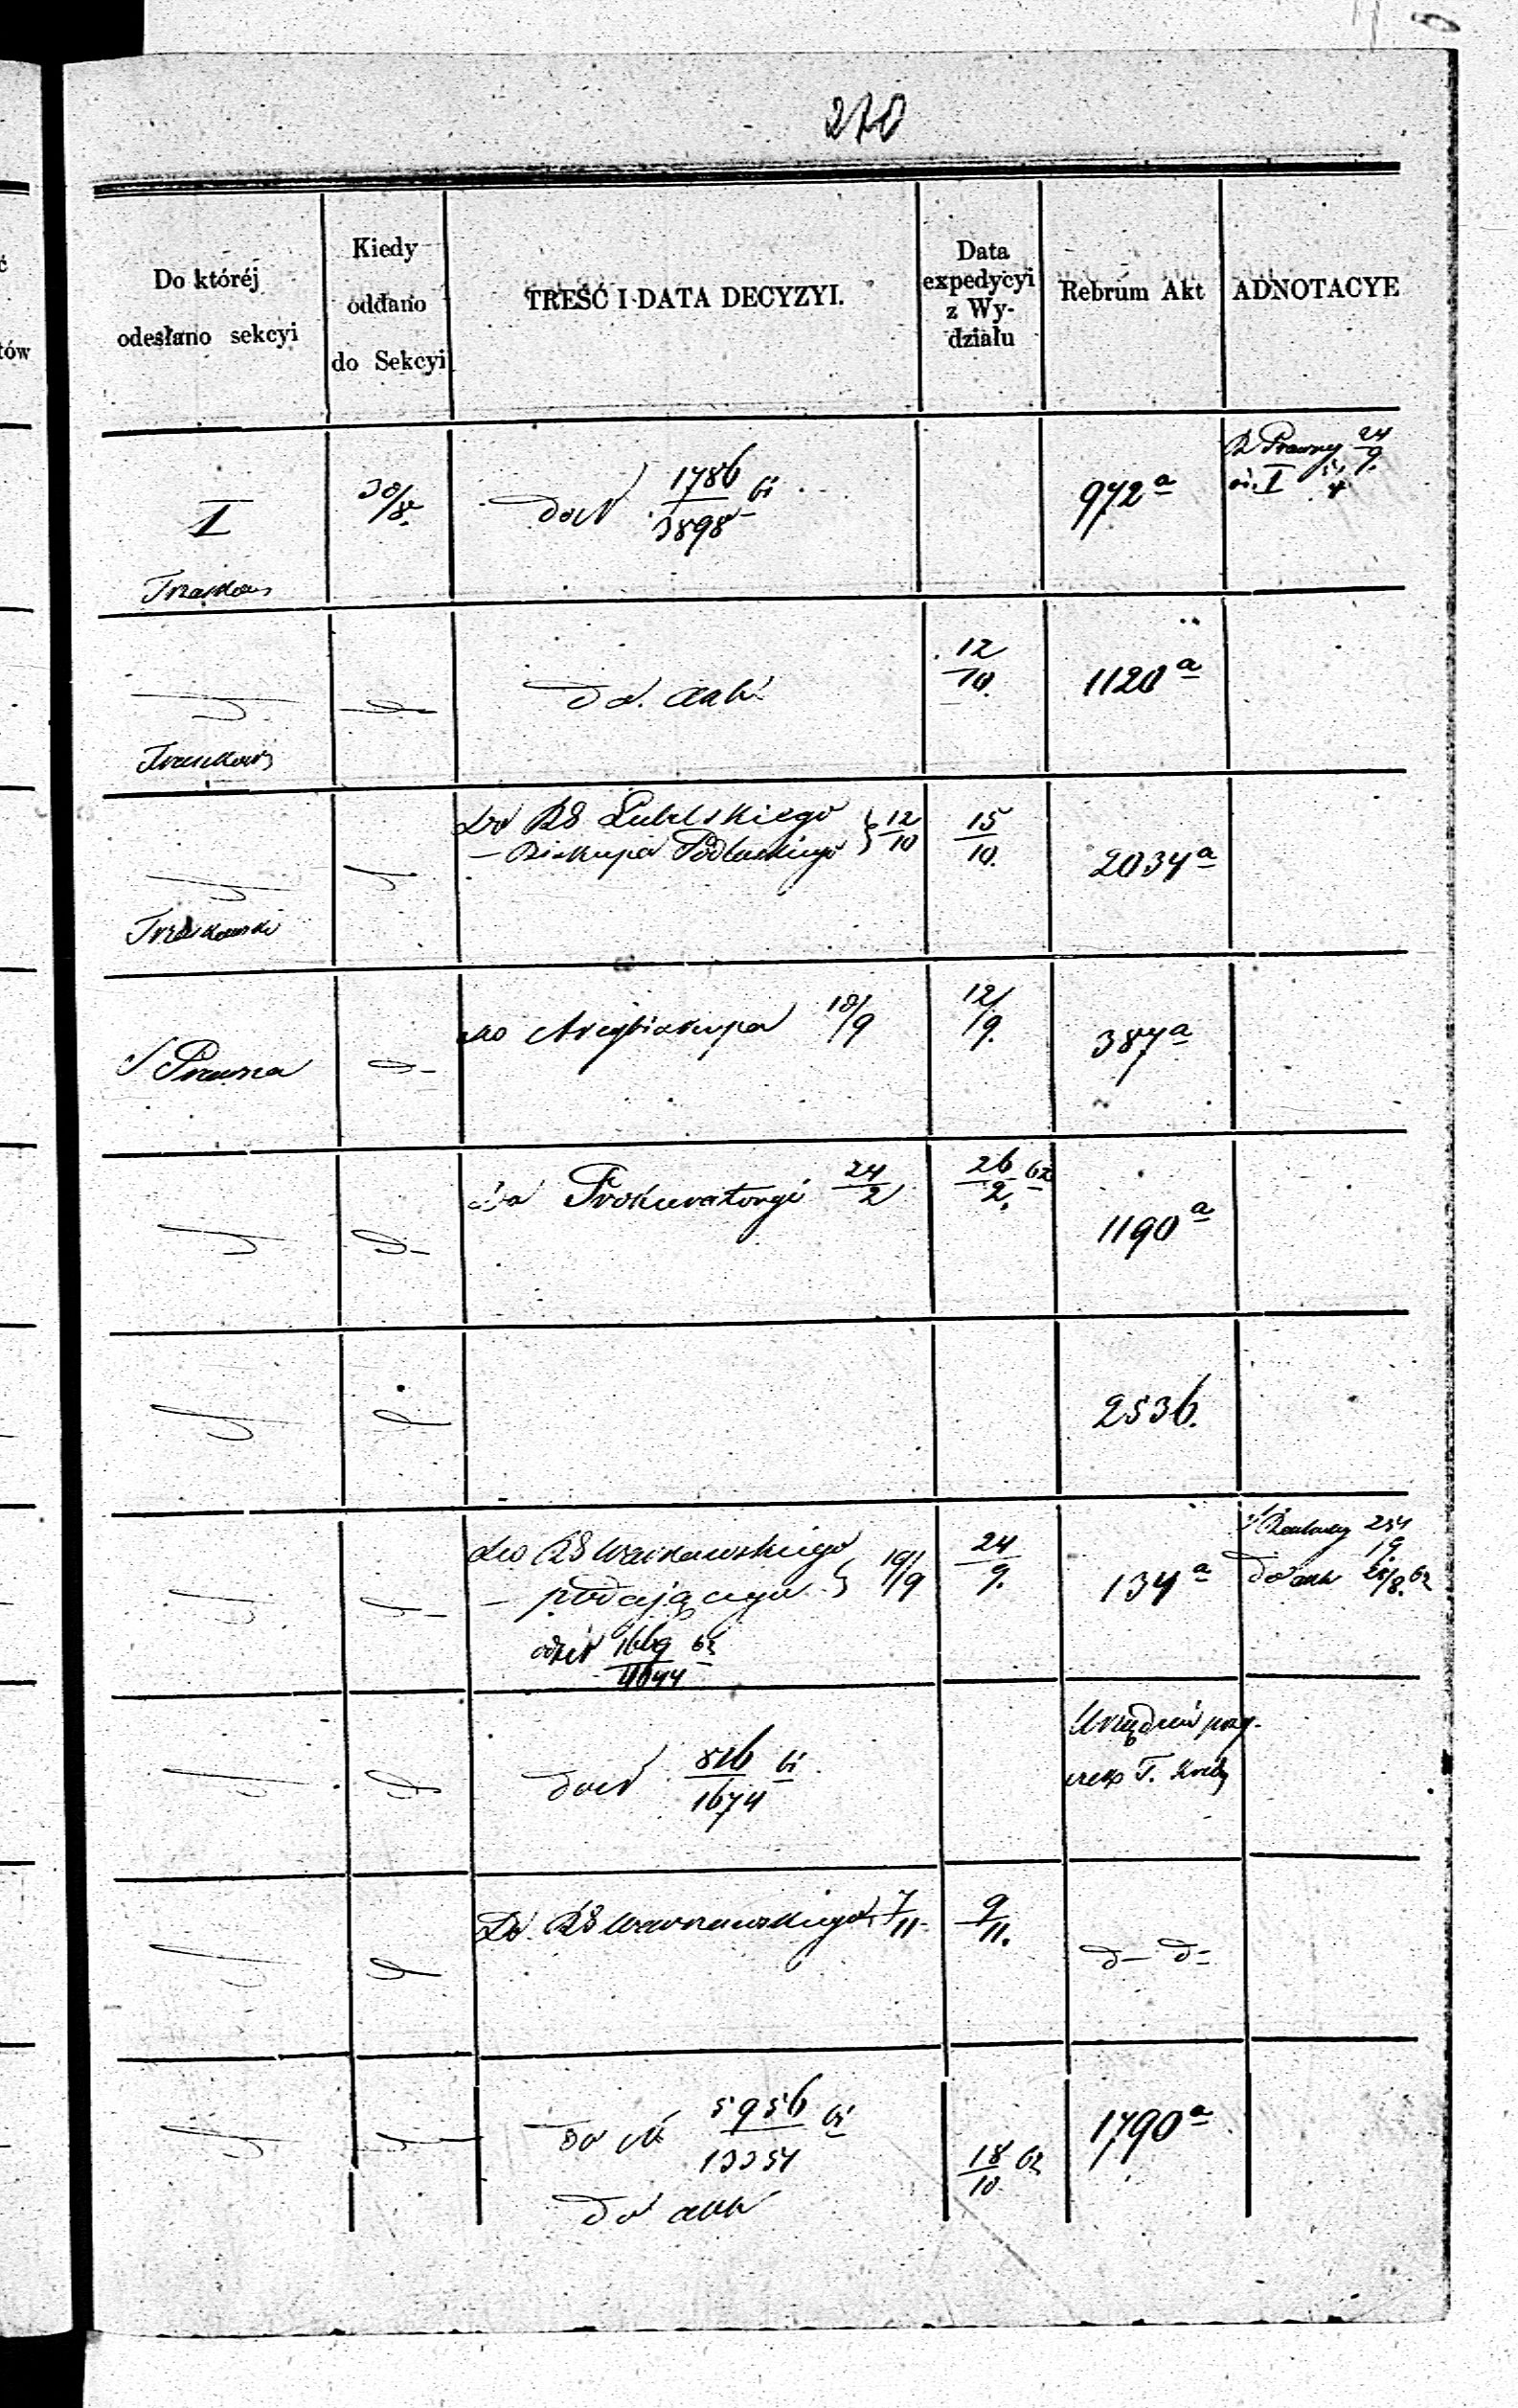 270
Do któréj
odesłano sekcyi
Kiedy
oddano
do Sekcyi
TREŚĆ I DATA DECYZYI.
Data
expedycyi
z Wy-
działu
Rebrum Akt
ADNOTACYE
I
30/8
do N 1786/3898 61
972 a
Prawny 24/9
I
do akt
12/10
1120 a
Do RG Lubelskiego
— Biskupa Podlaskiego } 12/10
15/10
2034 a
Trzaskowski
S Prawna
d-
do Arcybiskupa 10/9
12/9
387 a
d-
do Prokuratoryi 24/2
26/2 62
1190 a
2536.
do RG Warszawskiego
— podającego } 19/9
24/9
134 a
do akt 28/8 62
1669/4644 62
do N 816/1674 61
Do RG Warszawskiego 7/11
9/11
d- d-
do N 5956/13354 61
do akt
18/10 62
1790 a